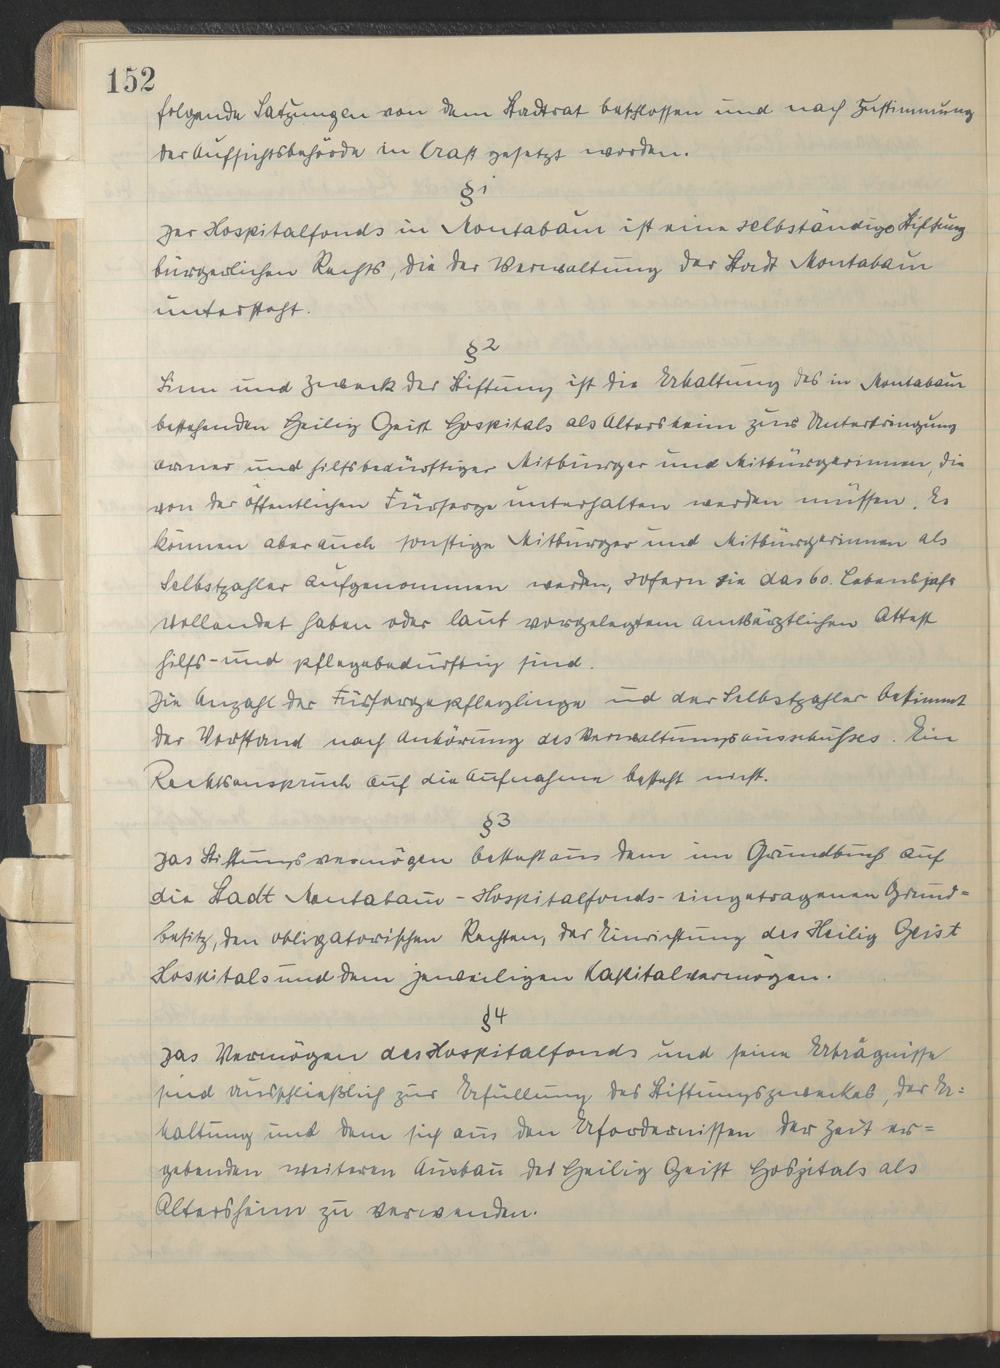 152
folgende Satzungen von dem Stadtrat beschlossen und nach Zustimmung
der Aufsichtsbehörde in Craft gesetzt worden.
§ 1
Der Hospitalfonds in Montabaur ist eine selbständige Stiftung
bürgerlichen Rechts, die der Verwaltung der Stadt Montabaur
untersteht.
§ 2
Sinn und Zweck der Stiftung ist die Erhaltung des in Montabaur
bestehenden Heilig Geist Hospitals als Altersheim zur Unterbringung
armer und hilfsbedürftiger Mitbürger und Mitbürgerinnen, die
von der öffentlichen Fürsorge unterhalten werden müssen. Es
können aber auch sonstige Mitbürger und Mitbürgerinnen als
Selbstzahler aufgenommen werden, sofern sie das 60. Lebensjahr
vollendet haben oder laut vorgelegtem amtsärztlichen Attest
hilfs- und pflegebedürftig sind.
Die Anzahl der Fürsorgepfleglinge und der Selbstzahler bestimmt
der Vorstand nach Anhörung des Verwaltungsausschusses. Ein
Rechtsanspruch auf die Aufnahme besteht nicht.
§ 3
Das Stiftungsvermögen besteht aus dem im Grundbuch auf
die Stadt Montabaur - Hospitalfonds - eingetragenen Grund=
besitz, den obligatorischen Rechten, der Einrichtung des Heilig Geist
Hospitals und dem jeweiligen Kapitalvermögen.
§ 4
Das Vermögen des Hospitalfonds und seine Erträgnisse
sind ausschließlich zur Erfüllung des Stiftungszweckes, der Er=
haltung und dem sich aus den Erfordernissen der Zeit er=
gebenden weiteren Ausbau des Heilig Geist Hospitals als
Altersheim zu verwenden.